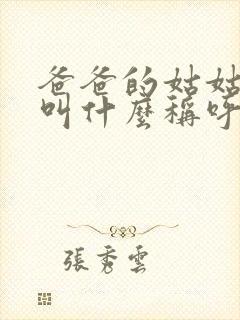 爸爸的姑姑
叫什麼稱呼
張秀雲